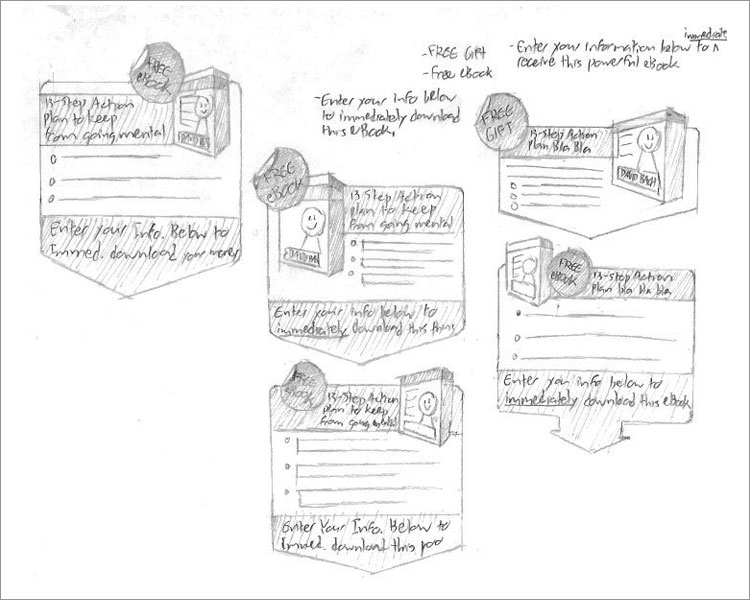 - FREE Gift
- Free eBook
- Enter your information below to immediate
receive this powerful eBook
- Enter your info below
to immediately download
this eBook,
FREE
eBook
13-Step Action
plan to keep
from going mental
Enter your Info. Below to
Immed. download your money
FREE
eBook
13-Step Action
plan to keep
from going mental
Enter your info below to
immediately download this thing
FREE
eBook
13-Step Action
plan to keep
from going mental
Enter Your Info. Below to
Immed. download this poo
FREE
GIFT
13-Step Action
Plan, Bla Bla
DAVID BACH
FREE
eBook
13-Step Action
Plan bla bla bla
Enter you info below to
immediately download this eBook